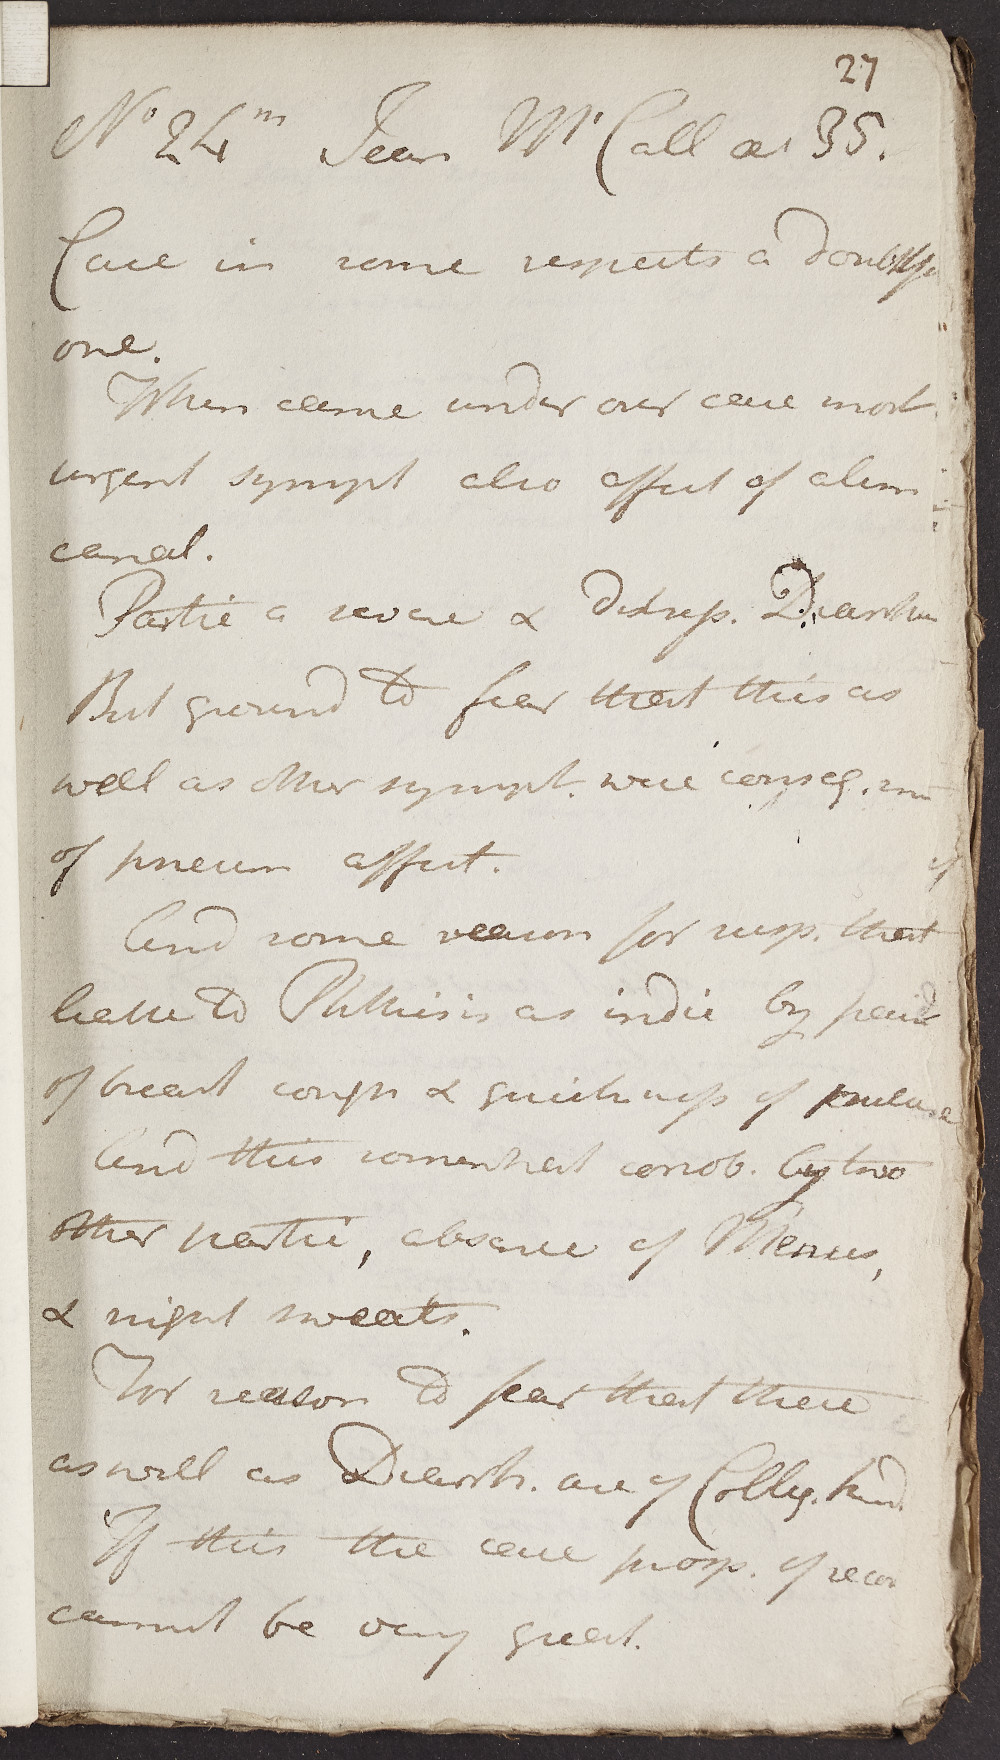 27
No 24m Jean McCall aet 35.
Case in some respects a doubtfu
one.
When came under our care most
urgent sympt also affect of alim
canal.
Partic a severe & distress. Diarrhœa
But ground to fear that this as
well as other sympt. were conseq.
of pneum affect.
And some reason for susp. that
hectic to Phthisis as indic by pain
of breast cough & quickness of pulse
And this somewhat corrob. by two
other partic, absence of Menses,
& night sweats.
For reason to fear that these
as well as Diarrh. are of Colliq. kind
If this the case prosp. of recov
cannot be very great.